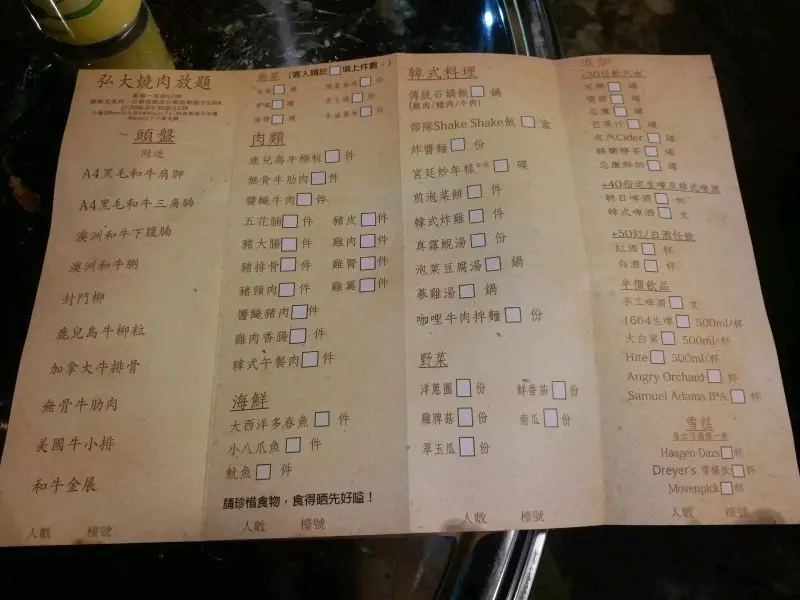 弘大燒肉放題
頭盤
附送
A4黑毛和牛肩胛
A4黑毛和牛三角腩
澳洲和牛下腹腩
澳洲和牛脷
封門柳
鹿兒島牛柳粒
加拿大牛排骨
無骨牛肋肉
美國牛小排
和牛金展
人數 檯號
煎菜 (客人請於 填上件數。)
肉類
鹿兒島牛柳粒 件
無骨牛肋肉 件
醬醃牛肉 件
五花腩 件 豬皮 件
豬大腸 件 雞肉 件
豬排骨 件 雞腎 件
豬頸肉 件 雞翼 件
醬醃豬肉 件
雞肉香腸 件
韓式午餐肉 件
海鮮
大西洋多春魚 件
小八爪魚 件
魷魚 件
請珍惜食物,食得晒先好嗌!
人數 檯號
韓式料理
傳統石鍋飯 鍋
(雞肉/豬肉/牛肉)
部隊Shake Shake飯 盒
炸醬麵 份
宮廷炒年糕 碟
煎泡菜餅 件
韓式炸雞 件
真露蜆湯 份
泡菜豆腐湯 鍋
蔘雞湯 鍋
咖哩牛肉拌麵 份
野菜
洋蔥圈 份 鮮番茄 份
雞脾菇 份 南瓜 份
翠玉瓜 份
人數 檯號
添加
+30任飲汽水
可樂 罐
雪碧 罐
忌廉 罐
芒果汁 罐
有汽Cider 罐
忌廉鮮奶 罐
+40指定生啤及韓式啤酒
朝日啤酒 杯
韓式啤酒 支
+50紅/白酒任飲
紅酒 杯
白酒 杯
半價飲品
手工啤酒 支
1664生啤 500ml/杯
大白鯊 500ml/杯
Hite 500ml/杯
Angry Orchard 杯
Samuel Adams IPA 杯
雪糕
Häagen-Dazs 杯
Dreyer's 雪條批 杯
Movenpick 杯
人數 檯號